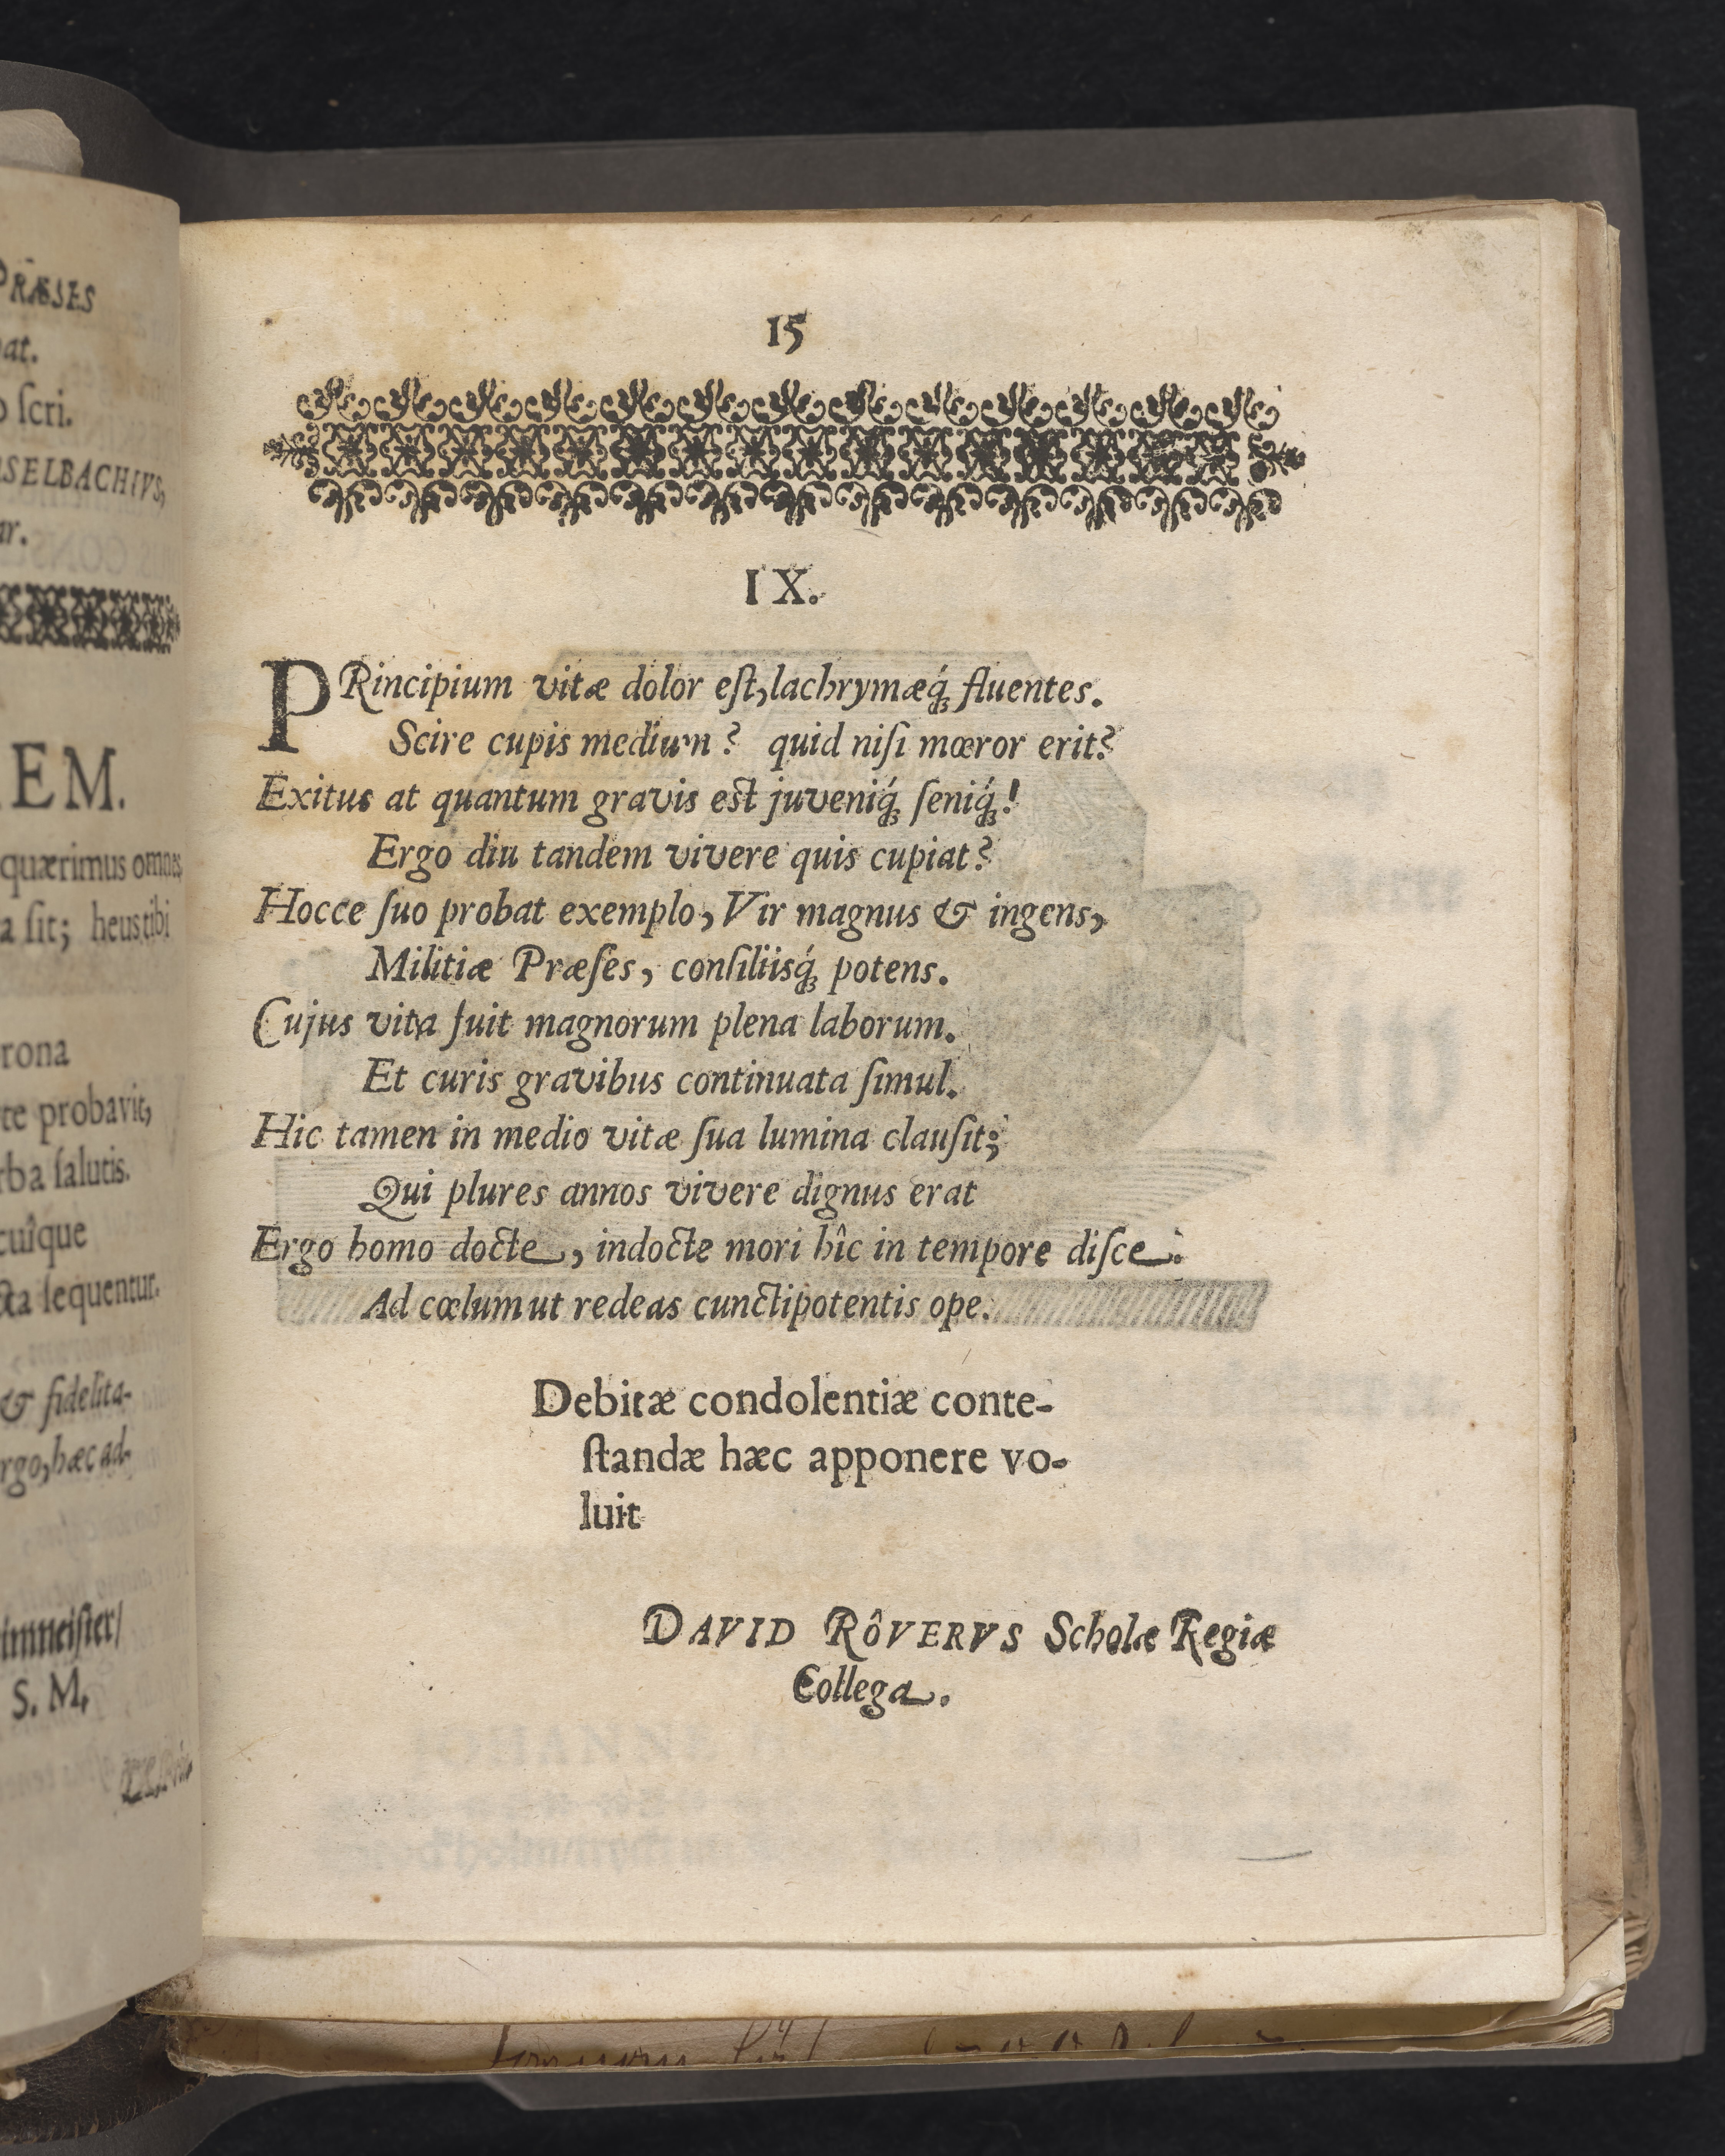 PRÆSES
at.
ſcri.
SELBACHIVS,
ar.
EM.
quærimus omnes
a ſit; heus tibi
rona
te probavit,
rba ſalutis.
cuîque
cta ſequentur.
& fidelita-
rgo, hæc ad-
S. M.
15
IX.
PRincipium vitæ dolor eſt, lachrymæq́; fluentes.
Scire cupis medium? quid niſi mœror erit?
Exitus at quantum gravis eſt juveniq́; ſeniq́;!
Ergo diu tandem vivere quis cupiat?
Hocce ſuo probat exemplo, Vir magnus & ingens,
Militiæ Præſes, conſiliisq́; potens.
Cujus vita fuit magnorum plena laborum.
Et curis gravibus continuata ſimul.
Hic tamen in medio vitæ ſua lumina clauſit;
Qui plures annos vivere dignus erat
Ergo homo docte, indocte mori hîc in tempore diſce.
Ad cœlum ut redeas cunctipotentis ope.
Debitæ condolentiæ conte-
ſtandæ hæc apponere vo-
luit
DAVID RÔVERVS Scholæ Regiæ
Collega.